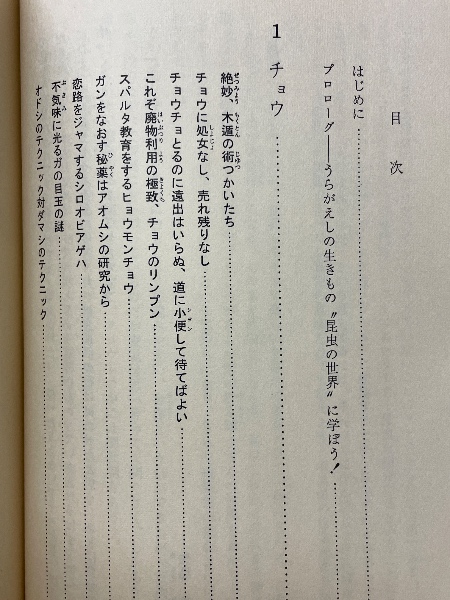 目次
はじめに
プロローグ——うらがえしの生きもの〝昆虫の世界〟に学ぼう！
1 チョウ
絶妙、木遁の術つかいたち
チョウに処女なし、売れ残りなし
チョウチョとるのに遠出はいらぬ、道に小便して待てばよい
これぞ廃物利用の極致、チョウのリンプン
スパルタ教育をするヒョウモンチョウ
ガンをなおす秘薬はアオムシの研究から
恋路をジャマするシロオビアゲハ
不気味に光るガの目玉の謎
オドシのテクニック対ダマシのテクニック